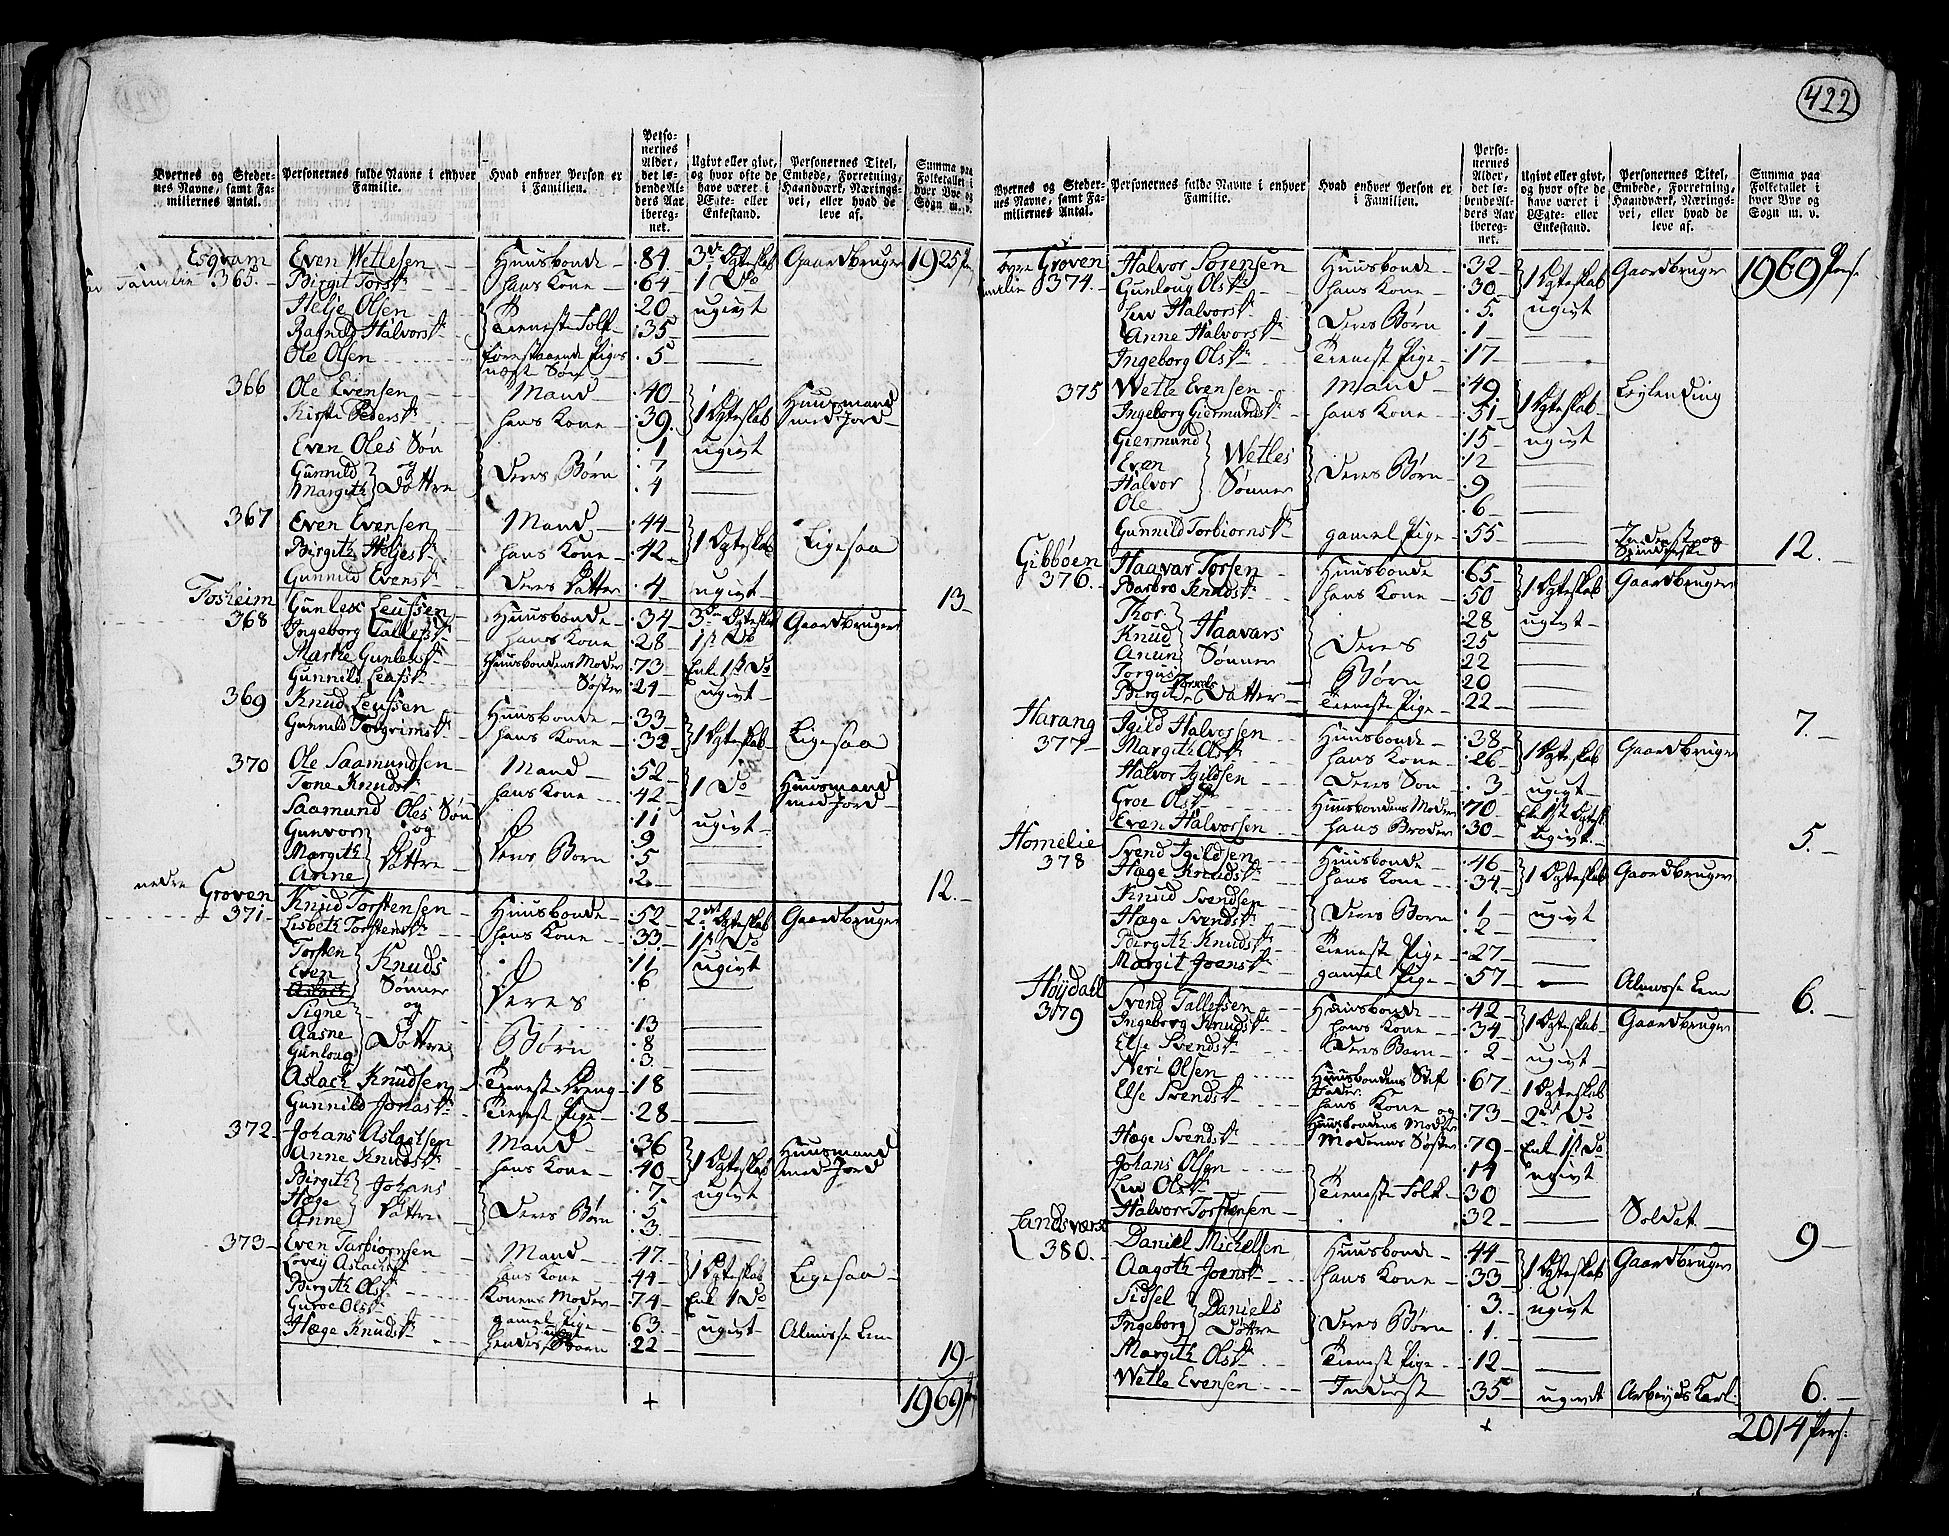 Byernes og Stedernes Navne, samt Familiernes Antal. | Personernes fulde Navne i enhver Familie. | Hvad enhver Person er i Familien. | Personernes Alder, det løbende Alders Aar iberegnet. | Ugivt eller givt, og hvor ofte de have været i Ægte- eller Enkestand. | Personernes Titel, Embede, Forretning, Haandværk, Næringsvei, eller hvad de leve af. | Summa paa Folketallet i hver Bye og Sogn m. v.
Esgram | Even Wetlesen | Huusbonde | 84 | 3de Ægteskab | Gaardbruger | 1925 Prs
Familie 365. | Birgit Torstr | hans Kone | 64 | 1 Do
Helje Olsen | Tieneste Folk | 20 | ugivt
Ragnild Halvorstr | 35
Ole Olsen | forestaaende Piges uægt Søn | 5
366 | Ole Evensen | Mand | 40 | 1 Ægteskab | Huusmand med Jord
Kirsti Pederstr | hans Kone | 39
Even Oles Søn | 1 | ugivt
Gunnild | og | Deres Børn | 7
Margith | Døttre | 4
367 | Even Evensen | Mand | 44 | 1 Ægteskab | Ligesaa
Birgith Høljestr | hans Kone | 42
Gunnild Evenstr | Deres Datter | 4 | ugivt | 13
Tosheim | Gunleix Leufsen | Huusbonde | 34 | 3de Ægteskab | Gaardbruger
368 | Ingeborg Tallefstr | hans Kone | 28 | 1st Do
Marthe Gunleixtr | Huusbondens Moder | 73 | Enk 1st Do
Gunnild Leufstr | Søster | 24 | ugivt
369 | Knud Leufsen | Huusbonde | 33 | 1 Ægteskab | Ligesaa
Gunnild Torgrimstr | hans Kone | 32
370 | Ole Saamundsen | Mand | 52 | 1 Do | Huusmand med Jord
Tone Knudstr | hans Kone | 42
Saamund Oles Søn | 11 | ugivt
Gunvor | og | 9
Margith | Døttre | Deres Børn | 5
Anne | 2 | 12.
nedre Groven | Knud Torstensen | Huusbonde | 52 | 2det Ægteskab | Gaardbruger
371 | Lisbeth Torstenstr | hans Kone | 33 | 1st Do
Torsten | Knuds | 11 | ugivt
Even | Sønner | 6
Aslach | og | Deres
Signe | 13
Aasne | Døttre | Børn | 8
Gunloug | 3
Aslach Knudsen | Tieneste Dreng | 18
Gunnild Jonastr | Tieneste Pige | 28
372 | Johans Aslachsen | Mand | 36 | 1 Ægteskab | Huusmand med Jord
Anne Knudstr | hans Kone | 40
Birgith | Johans | 7 | ugivt
Hæge | Døttre | Deres Børn | 5
Anne | 3
373 | Even Tarbiornsen | Mand | 47 | 1 Ægteskab | Ligesaa
Lovey Aslachstr | hans Kone | 44
Birgith Olstr | Konens Moder | 74 | Enk 1 Do
Guroe Olstr | gamel Pige | 63 | ugivt | Almisse Lem
Hæge Knudstr | hendes uægt Børn | 22 | 19
1969 Prs
422
Byernes og Stedernes Navne, samt Familiernes Antal. | Personernes fulde Navne i enhver Familie. | Hvad enhver Person er i Familien. | Personernes Alder, det løbende Alders Aar iberegnet. | Ugivt eller givt, og hvor ofte de have været i Ægte- eller Enkestand. | Personernes Titel, Embede, Forretning, Haandværk, Næringsvei, eller hvad de leve af. | Summa paa Folketallet i hver Bye og Sogn m. v.
øvre Groven | Halvor Sørensen | Huusbonde | 32 | 1 Ægteskab | Gaardbruger | 1969 Pers:
Familie 374. | Gunloug Olstr | hans Kone | 30
Liv Halvorstr | Deres Børn | 5 | ugivt
Anne Halvorstr | 1
Ingeborg Olstr | Tienest Pige | 17
375 | Wetle Evensen | Mand | 49 | 1 Ægteskab | Leylending
Ingeborg Giermundstr | hans Kone | 51
Giermund | 15 | ugivt
Even | Wetles | Deres Børn | 12
Halvor | Sønner | 9
Ole | 6
Gunnild Torbiornstr | gamel Pige | 55 | Inderst og | 12.
Gibbøen | Haavar Torsen | Huusbonde | 65 | 1 Ægteskab | Gaardbruger
376. | Barbro Knudstr | hans Kone | 50
Thor | 28 | ugivt
Knud | Haavars | Deres | 25
Anun | Sønner | 22
Torgus | Børn | 20
Birgit Datter | Tieneste Pige | 22 | 7.
Harang | Igild Halvorsen | Huusbonde | 38 | 1 Ægteskab | Gaardbruger
377 | Margith Olstr | hans Kone | 26
Halvor Igildsen | Deres Søn | 3 | ugivt
Groe Olstr | Huusbondens Moder | 70 | Enk 1st Ægtesk
Even Halvorsen | hans Broder | 30 | ugivt | 5.
Homelie | Svend Igildsen | Huusbonde | 46 | 1 Ægteskab | Gaardbruger
378 | Hæge Knudstr | hans Kone | 34
Knud Svendsen | Deres Børn | 1 | ugivt
Hæge Svendstr | 2
Birgith Knudstr | Tieneste Pige | 27
Margit Joenstr | gamel Pige | 57 | Almisse Lem | 6.
Høydall | Svend Tallefsen | Huusbonde | 42 | 1 Ægteskab | Gaardbruger
379 | Ingeborg Knudstr | hans Kone | 34
Else Svendstr | Deres Barn | 2 | ugivt
Neri Olsen | Huusbondens Stif Fader | 67 | 1 Ægteskab
Else Svendstr | hans Kone og Huusbondens Moder | 73 | 2det Do
Hæge Svendstr | Moderens Søster | 79 | Enk 1st Do
Johans Olsen | 14 | ugivt
Liv Olstr | Tieneste Folk | 30
Halvor Torstensen | 32 | Soldat | 9
Landsværk | Daniel Michelsen | Huusbonde | 44 | 1 Ægteskab | Gaardbruger
380. | Aagoth Joenstr | hans Kone | 33
Sidsel | Daniels | Deres Børn | 3 | ugivt
Ingeborg | Døttre | 1
Margith Olstr | Tieneste Pige | 12
Wetle Evensen | Inderst | 35 | ugivdt | Arbeyds Karl | 6.
2014 Pers: